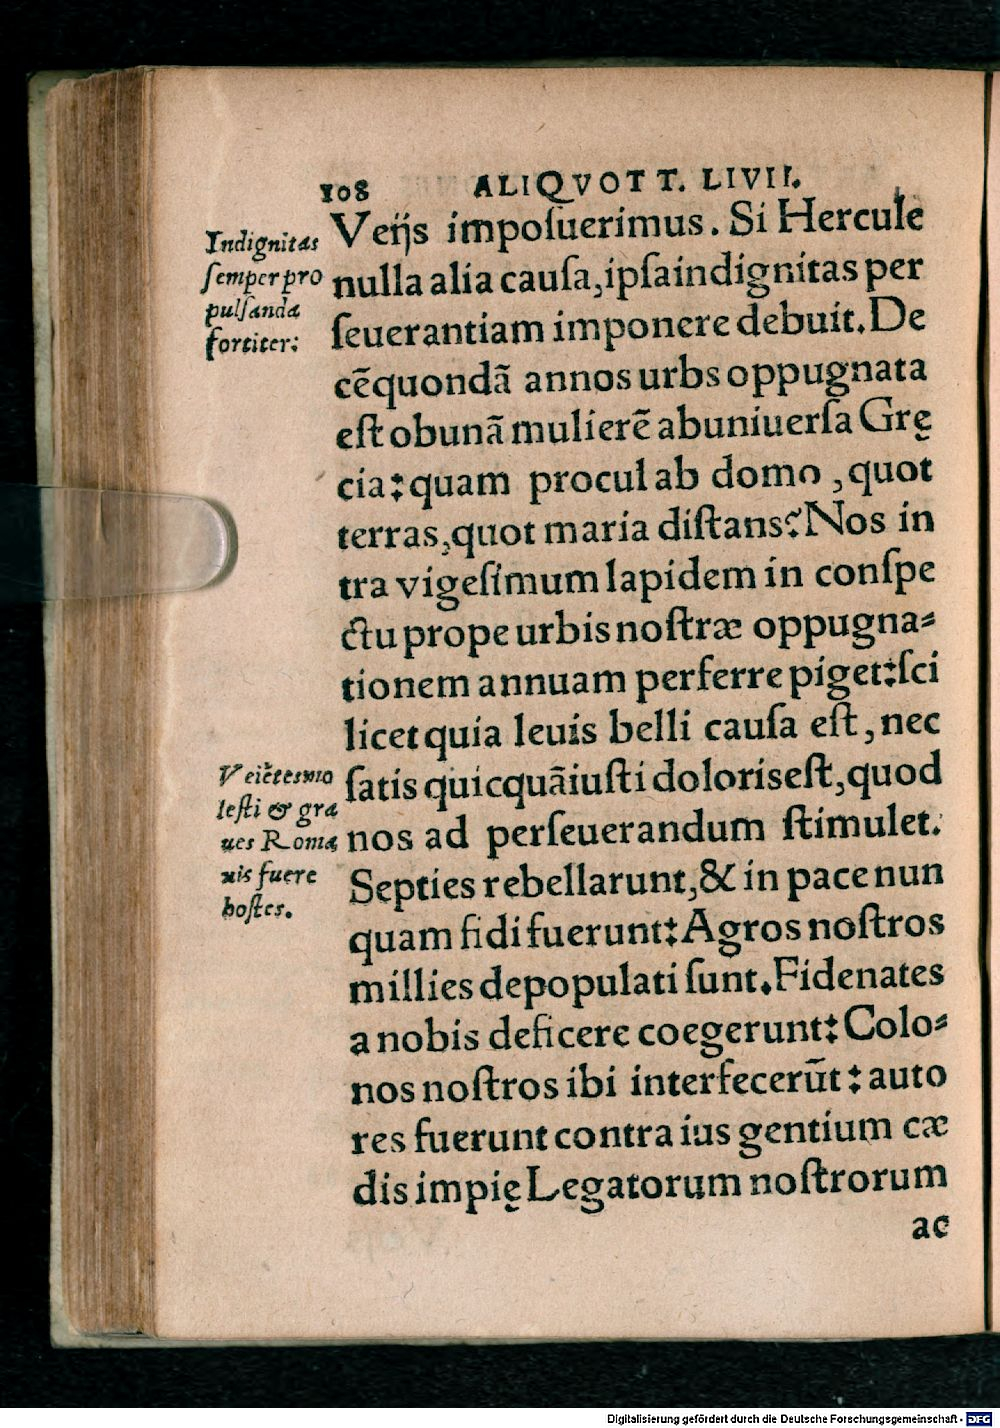 108 ALIQVOT T. LIVII.
Indignitas
ſemper pro
pulſanda
fortiter:
Veijs impoſuerimus. Si Hercule
nulla alia cauſa, ipſa indignitas per
ſeuerantiam imponere debuit. De
cē quondā annos urbs oppugnata
eſt ob unā mulierē ab uniuerſa Grę
cia: quam procul ab domo, quot
terras, quot maria diſtans? Nos in
tra vigeſimum lapidem in conſpe
ctu prope urbis noſtræ oppugna-
tionem annuam perferre piget: ſci
licet quia leuis belli cauſa eſt, nec
ſatis quicquā iuſti doloris eſt, quod
nos ad perſeuerandum ſtimulet.
Septies rebellarunt, & in pace nun
quam fidi fuerunt: Agros noſtros
millies depopulati ſunt. Fidenates
a nobis deficere coegerunt: Colo-
nos noſtros ibi interfecerūt: auto
res fuerunt contra ius gentium cæ
dis impię Legatorum noſtrorum
Veiētes mo
leſti & gra
ues Roma
nis fuere
hoſtes.
ac
Digitalisierung gefördert durch die Deutsche Forschungsgemeinschaft - DFG